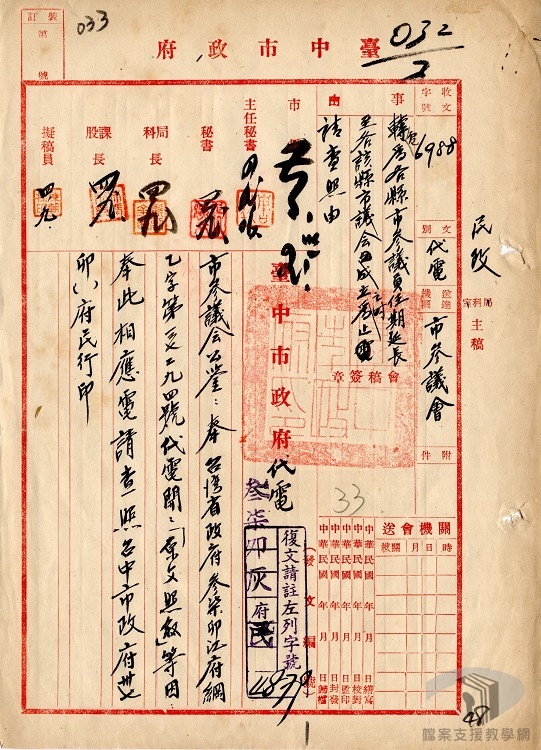 訂裝
第 號
033
臺中市政府
032
2
收文
字號
6988
文別
代電
送達機關
市參議會
附件
民政
局科室主稿
事由
轉為各縣市參議員任期延長
至各該縣市議會成立之時為止電
請查照由
會稿簽章
市長
主任秘書
秘書
局科長
課股長
擬稿員
臺中市政府代電
市參議會公鑒：奉台灣省政府參柒卯江府綱
乙字第二九四號代電開：「原文照敘」等因
奉此相應電請查照台中市政府
卯（）府民行印
33
關機會送
機關 月日時
中華民國 年 月 日繕寫
中華民國 年 月 日校對
中華民國 年 月 日監印
中華民國 年 月 日封發
中華民國 年 月 日歸檔
（發文編號）
復文請註左列字號
參柒卯灰府民
48
檔案支援教學網